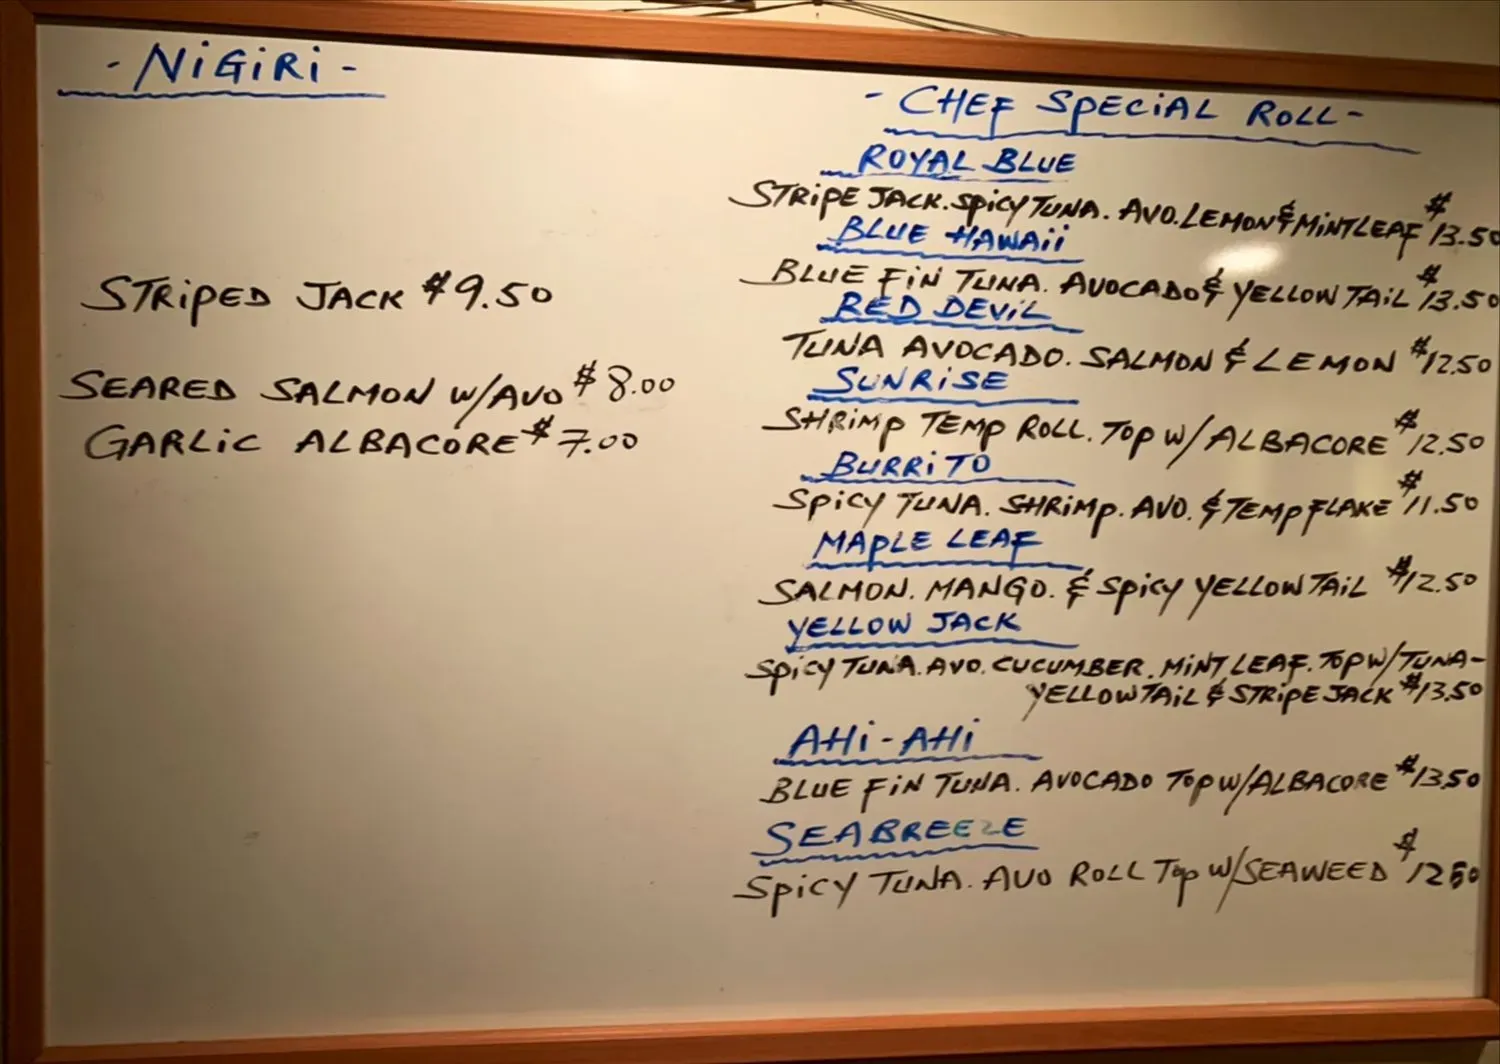 - NiGiRi -
STRiPED JACK $9.50
SEARED SALMON W/AVO $8.00
GARLiC ALBACORE $7.00
- CHEF SPECiAL ROLL -
ROYAL BLUE
STRiPE JACK. SPiCY TUNA. AVO. LEMON & MiNT LEAF $13.50
BLUE HAWAii
BLUE FiN TUNA. AVOCADO & YELLOW TAiL $13.50
RED DEViL
TUNA AVOCADO. SALMON & LEMON $12.50
SUNRiSE
SHRiMP TEMP ROLL. TOP W/ ALBACORE $12.50
BURRiTO
SPiCY TUNA. SHRiMP. AVO. & TEMP FLAKE $11.50
MAPLE LEAF
SALMON. MANGO. & SPiCY YELLOW TAiL $12.50
YELLOW JACK
SPiCY TUNA. AVO. CUCUMBER. MiNT LEAF. TOP W/ TUNA-
YELLOW TAiL & STRiPE JACK $13.50
AHi-AHi
BLUE FiN TUNA. AVOCADO TOP W/ALBACORE $13.50
SEABREEZE
SPiCY TUNA. AVO ROLL TOP W/SEAWEED $12.50